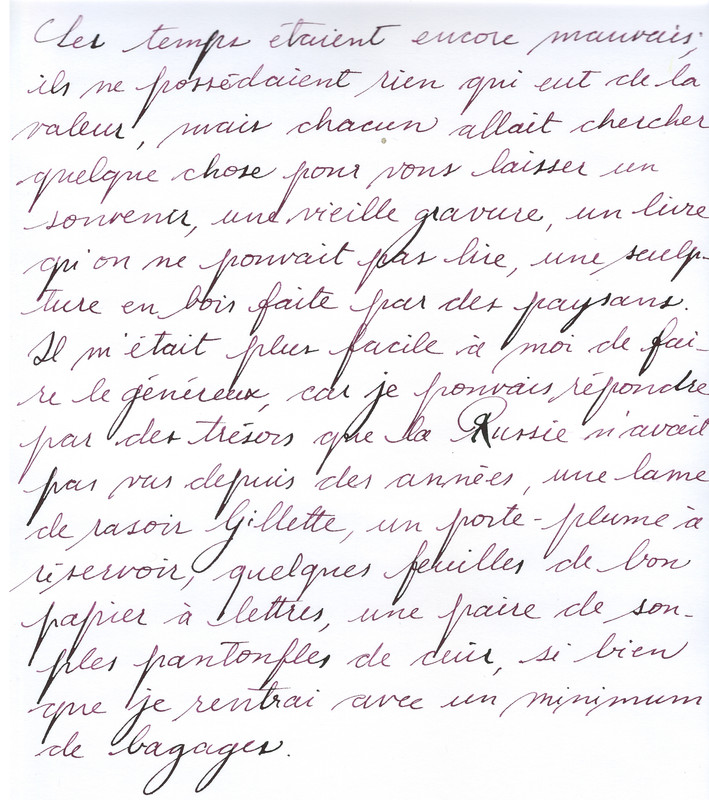 Les temps étaient encore mauvais;
ils ne possédaient rien qui eut de la
valeur, mais chacun allait chercher
quelque chose pour vous laisser un
souvenir, une vieille gravure, un livre
qu'on ne pouvait pas lire, une sculp-
ture en bois faite par des paysans.
Il m'était plus facile à moi de fai-
re le généreux, car je pouvais répondre
par des trésors que la Russie n'avait
pas vus depuis des années, une lame
de rasoir Gillette, un porte-plume à
réservoir, quelques feuilles de bon
papier à lettres, une paire de sou-
ples pantoufles de cuir, si bien
que je rentrai avec un minimum
de bagages.